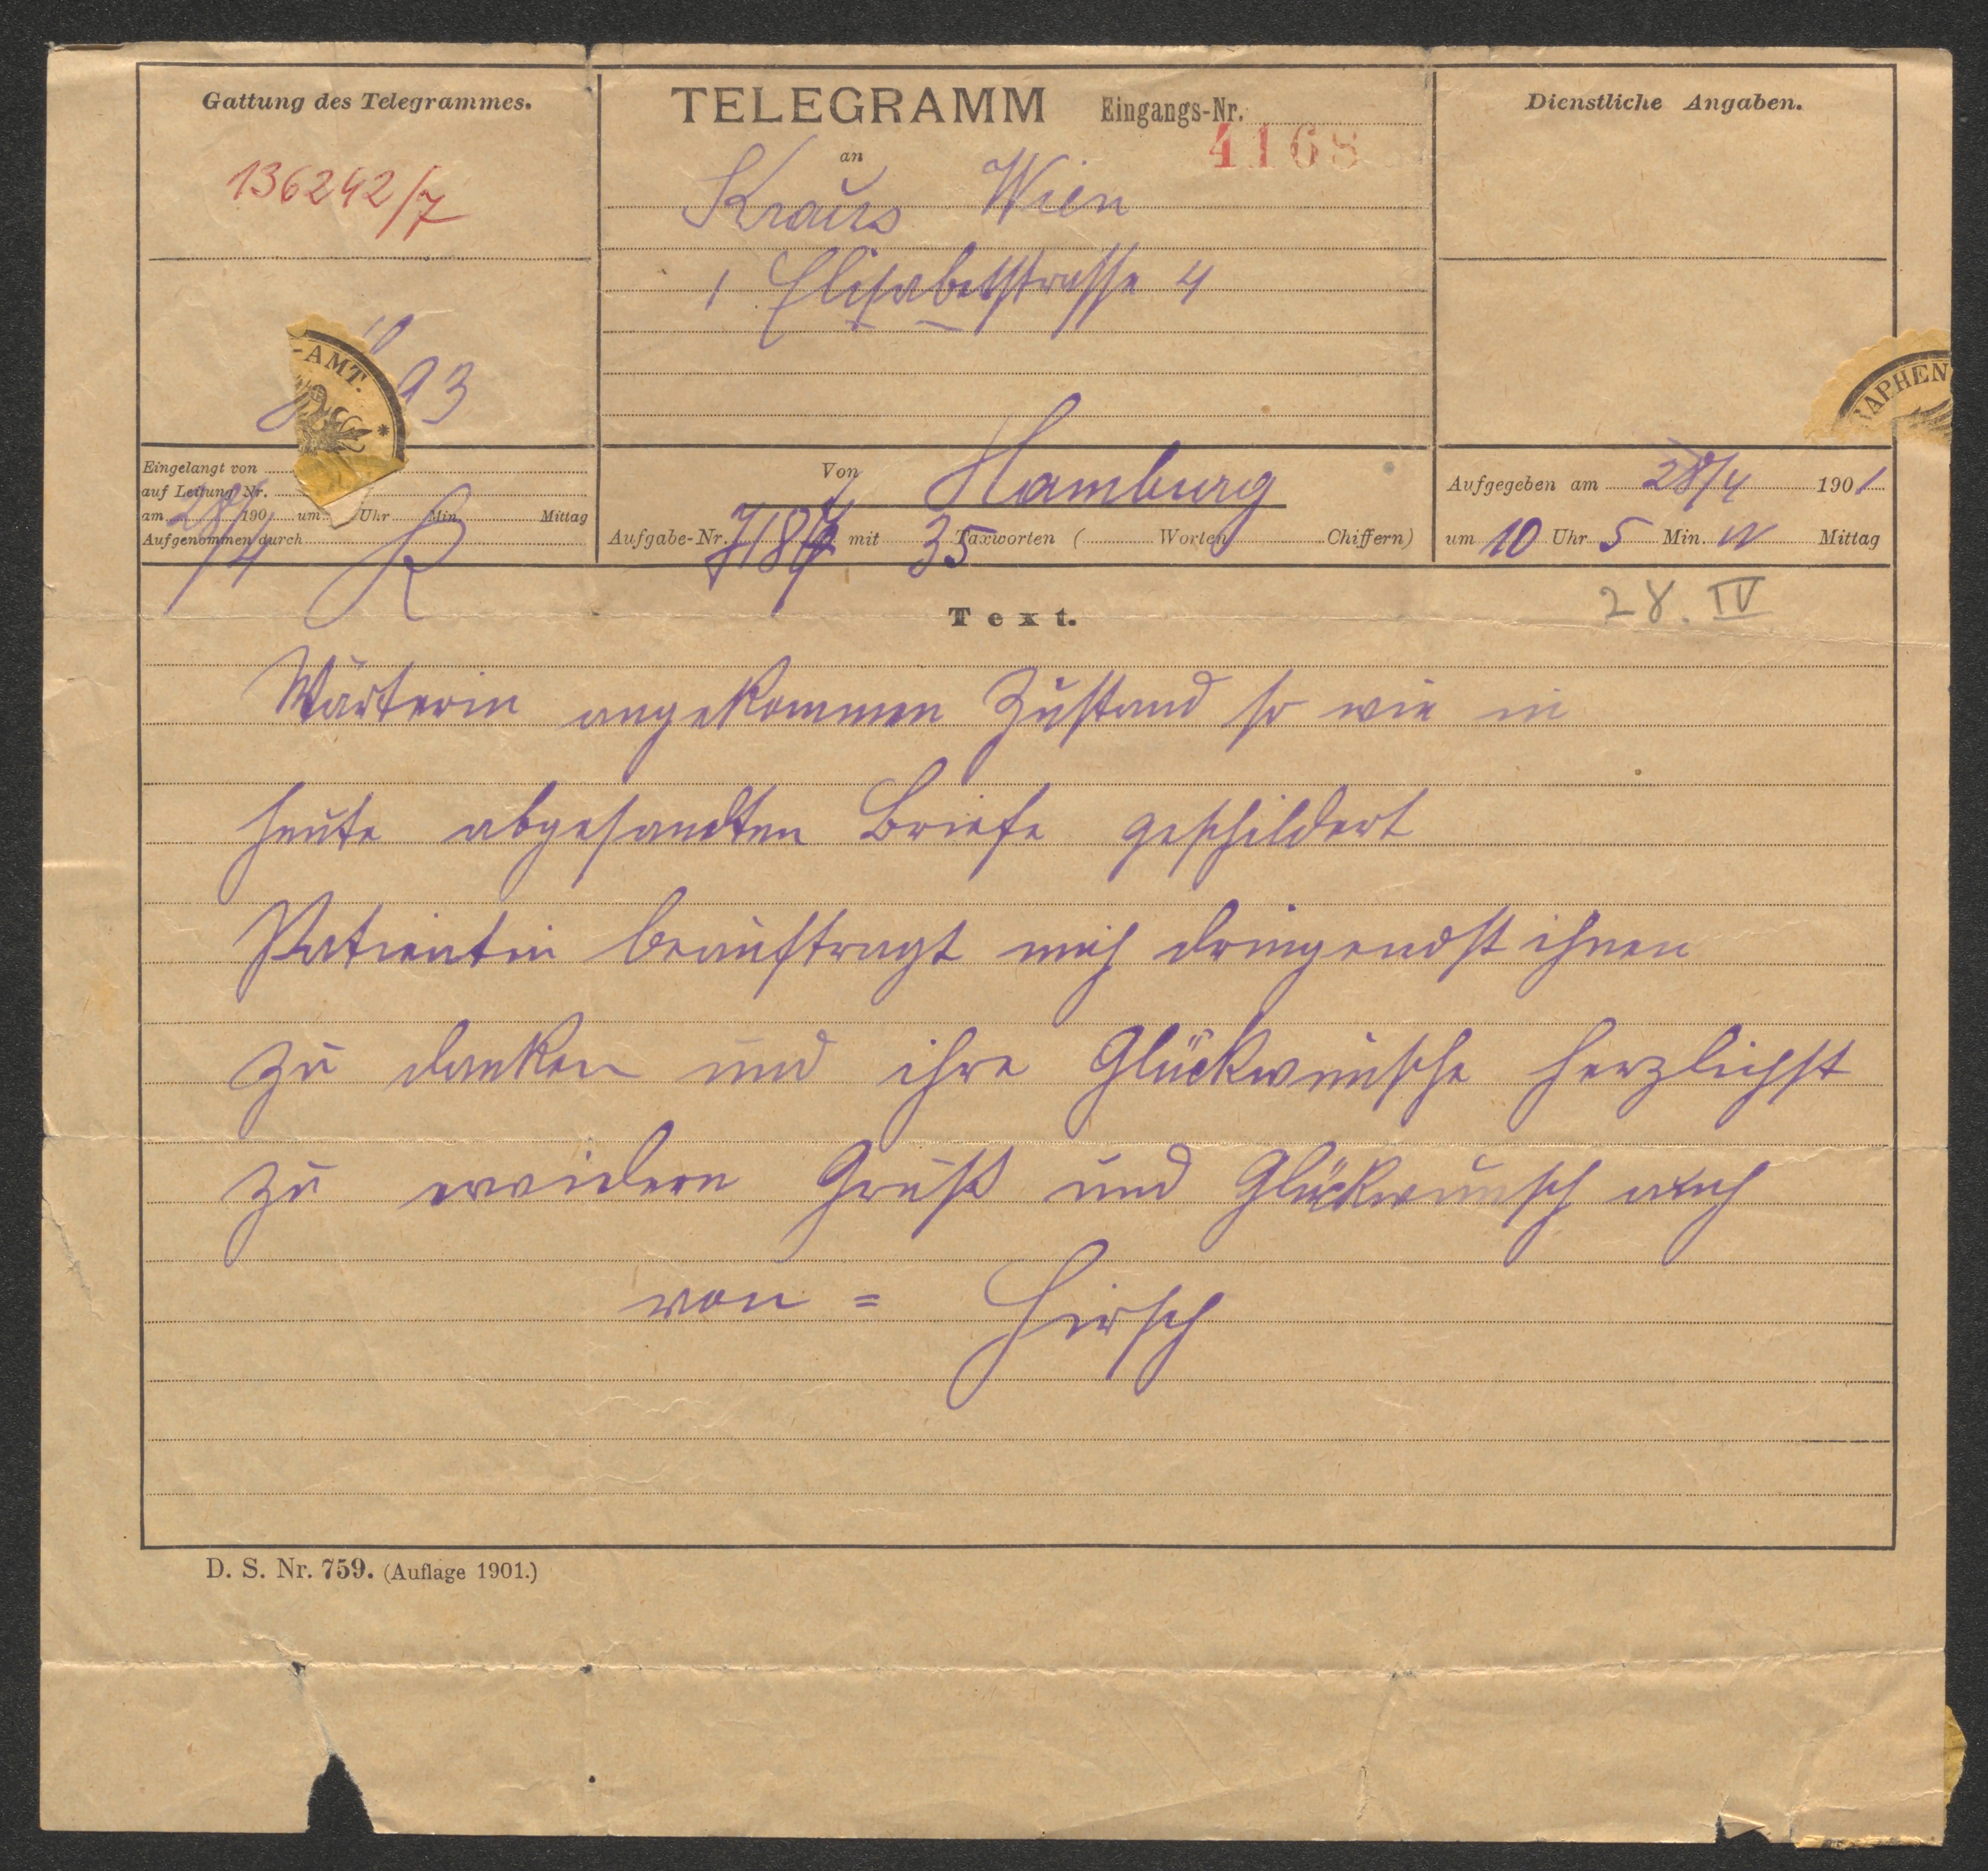 Gattung des Telegrammes.
136242/7
93
-AMT.
TELEGRAMM Eingangs-Nr.
4168
an
Kraus Wien
1 Elisabetstrasse 4
Dienstliche Angaben.
RAPHEN
Eingelangt von
auf Leitung Nr.
am 28/4 190 um Uhr Min. Mittag
Aufgenommen durch R
Von Hamburg
Aufgabe-Nr. mit 35 Taxworten ( Worten Chiffern)
Aufgegeben am 28/4 1901
um 10 Uhr 5 Min. Mittag
28. IV
Text.
Wärterin angekommen Zustand so wie in
heute abgesandten Briefe geschildert
Patientin beauftragt mich dringendst ihnen
zu danken und ihre Glückwünsche herzlichst
zu erwidern Gruß und Glückwunsch auch
von = Hirsch
D. S. Nr. 759. (Auflage 1901.)